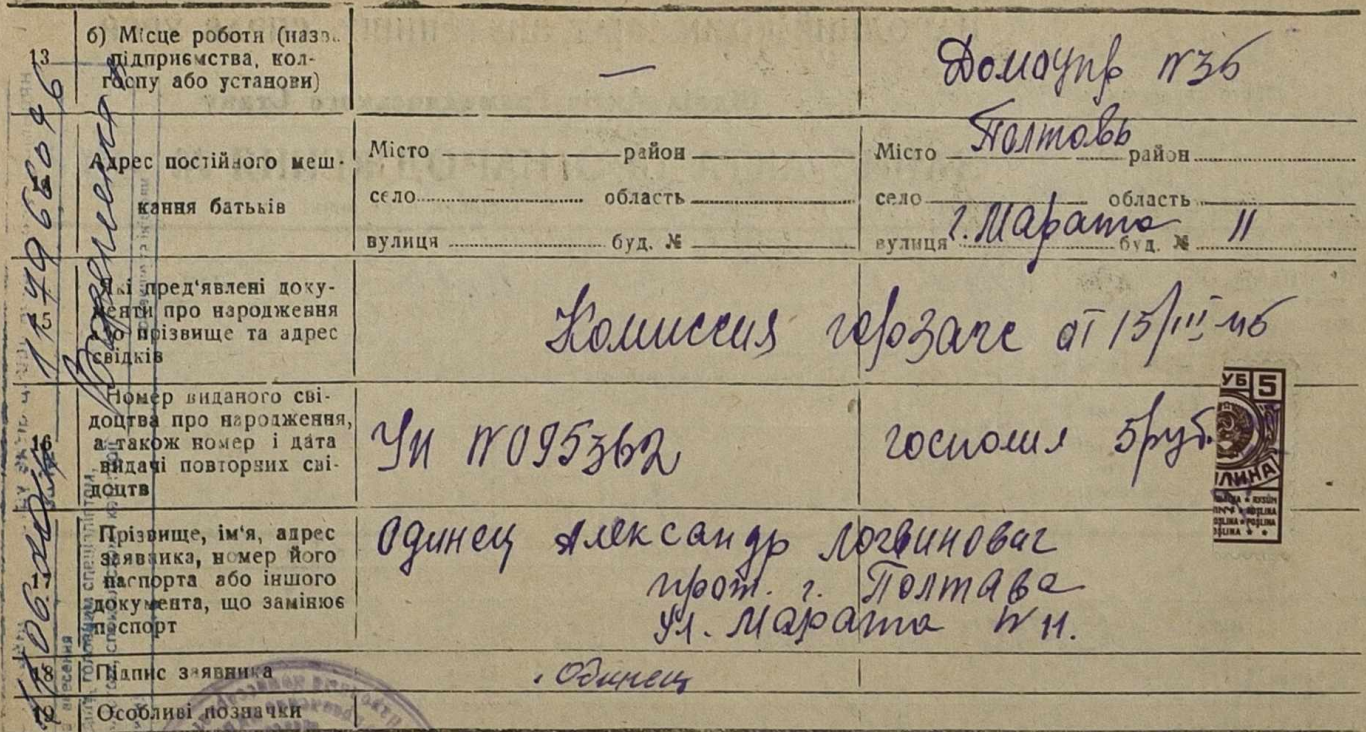 13 б) Місце роботи (назва підприємства, кол-
госпу або установи) — Домоупр N36
Адрес постійного меш-
кання батьків
Місто район Місто Полтавь район
село область село область
вулиця буд. № вулиця г. Марата буд. № 11
15 Які пред'явлені доку-
менти про народження
або прізвище та адрес
свідків
Комиссия горзагс от 15/III-46
16 Номер виданого сві-
доцтва про народження,
а також номер і дата
видачі повторних сві-
доцтв
УН N095362 госпошл 5руб.
УБ 5
17 Прізвище, ім'я, адрес
заявника, номер його
паспорта або іншого
документа, що замінює
паспорт
Одинец Александр Логвинович
прож. г. Полтава
ул. Марата N 11.
18 Підпис заявника Одинец
19 Особливі позначки